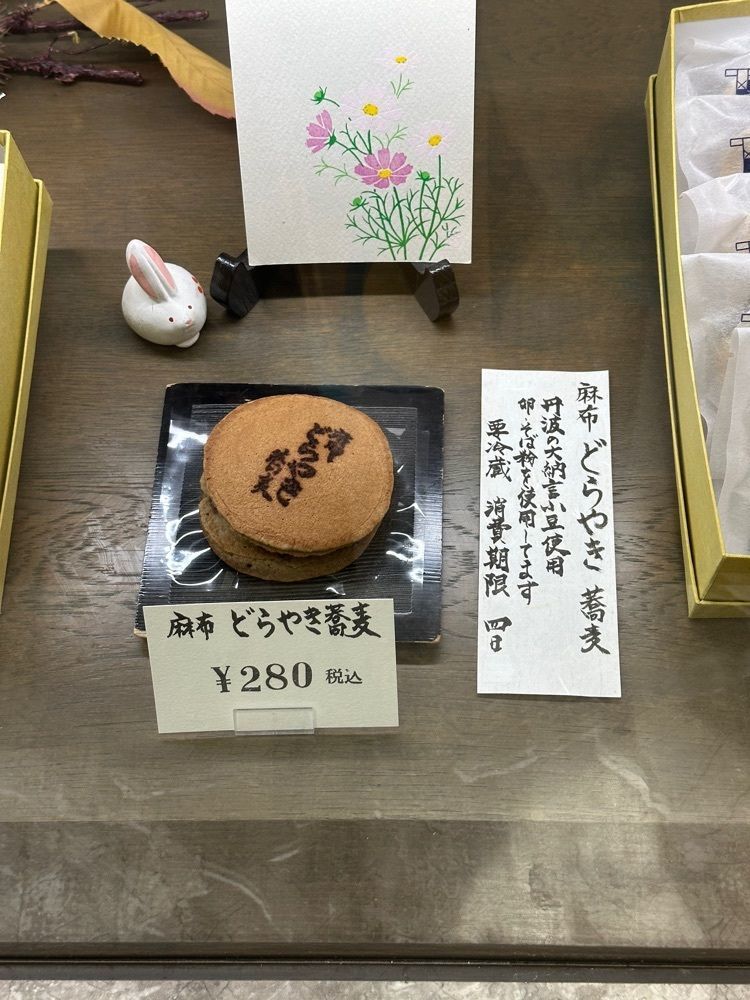 麻布 どらやき 蕎麦
丹波の大納言小豆使用
卵・そば粉を使用してます
要冷蔵 消費期限 四日
麻布
どらやき
蕎麦
麻布 どらやき蕎麦
¥280 税込